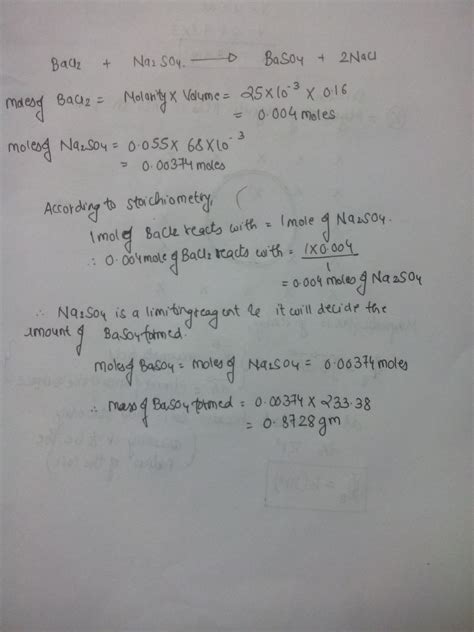 BaCl2 + Na2SO4 ⟶ BaSO4 + 2NaCl
moles of BaCl2 = Molarity x Volume = 25x10⁻³ x 0.16
= 0.004 moles
moles of Na2SO4 = 0.055 x 68x10⁻³
= 0.00374 moles
According to stoichiometry,
1 mol of BaCl2 reacts with = 1 mole of Na2SO4.
∴ 0.004 mole of BaCl2 reacts with = 1x0.004
1
= 0.004 moles of Na2SO4
∴ Na2SO4 is a limiting reagent & it will decide the
amount of BaSO4 formed.
moles of BaSO4 = moles of Na2SO4 = 0.00374 moles
∴ mass of BaSO4 formed = 0.00374 x 233.38
= 0.8728 gm